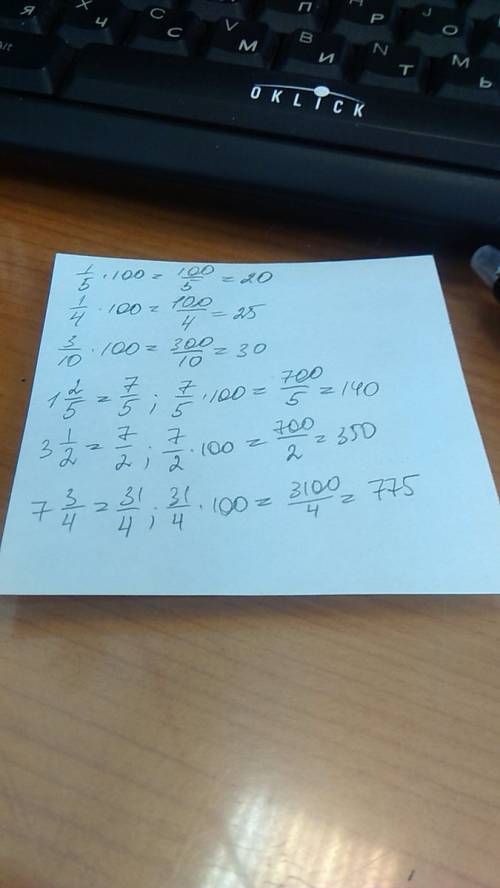 Я Ч С М И Т Ь
П Р О
Alt X C V B N M J
OKLICK
1/5 · 100 = 100/5 = 20
1/4 · 100 = 100/4 = 25
3/10 · 100 = 300/10 = 30
1 2/5 = 7/5 ; 7/5 · 100 = 700/5 = 140
3 1/2 = 7/2 ; 7/2 · 100 = 700/2 = 350
7 3/4 = 31/4 ; 31/4 · 100 = 3100/4 = 775